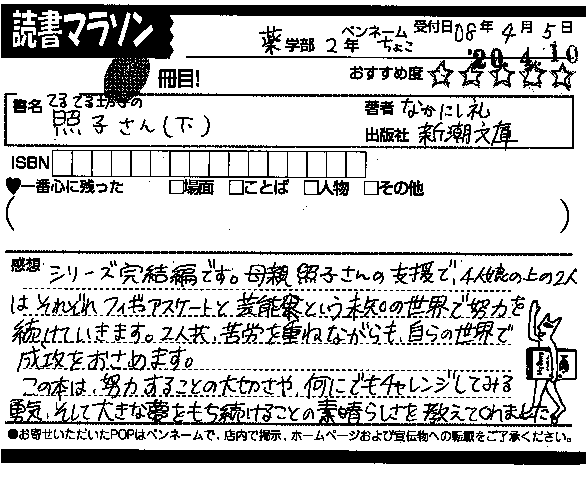 読書マラソン
薬学部 2年 ペンネーム ちょこ 受付日 08年 4月 5日
20. 4. 10
冊目!
おすすめ度 ☆☆☆☆☆
書名 てるてる坊主の
照子さん(下)
著者 なかにし礼
出版社 新潮文庫
ISBN
♥一番心に残った □場面 □ことば □人物 □その他
( )
感想 シリーズ完結編です。母親 照子さんの支援で、4人娘の上の2人
はそれぞれフィギュアスケートと芸能界という未知の世界で努力を
続けていきます。2人共、苦労を重ねながらも、自らの世界で
成功をおさめます。
この本は、努力することの大切さや、何にでもチャレンジしてみる
勇気、そして大きな夢をもち続けることの素晴らしさを教えてくれました。
●お寄せいただいたPOPはペンネームで、店内で掲示、ホームページおよび宣伝物への転載をご了承ください。